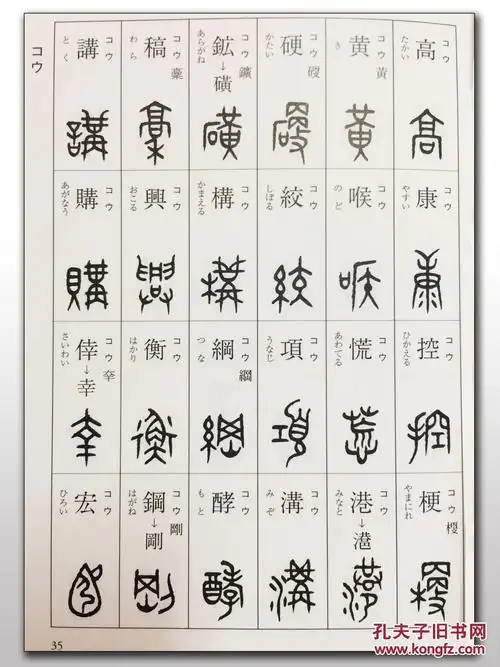 コウ
コウ 高 たかい
コウ 黄 黃 き
コウ 硬 かたい
コウ 鉱→磺 鑛 あらがね
コウ 稿 稾 わら
コウ 講 とく
コウ 康 やすい
コウ 喉 のど
コウ 絞 しぼる
コウ 構 かまえる
コウ 興 おこる
コウ 購 あがなう
コウ 控 ひかえる
コウ 慌 あわてる
コウ 項 うなじ
コウ 綱 つな
コウ 衡 はかり
コウ 倖→幸 さいわい
コウ 梗 やまにれ
コウ 港→ みなと
コウ 溝 みぞ
コウ 酵 もと
コウ 鋼→剛 剛 はがね
コウ 宏 ひろい
35
孔夫子旧书网
www.kongfz.com